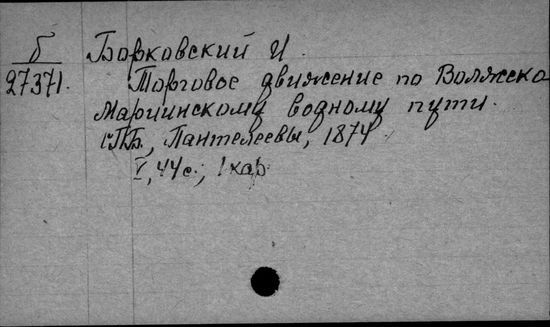 б
27371.
Борковский И
Торговое движение по Волжско
Мариинскому водному пути.
СПБ., Пантелеевы, 1874
V, 44 с.; 1 кар